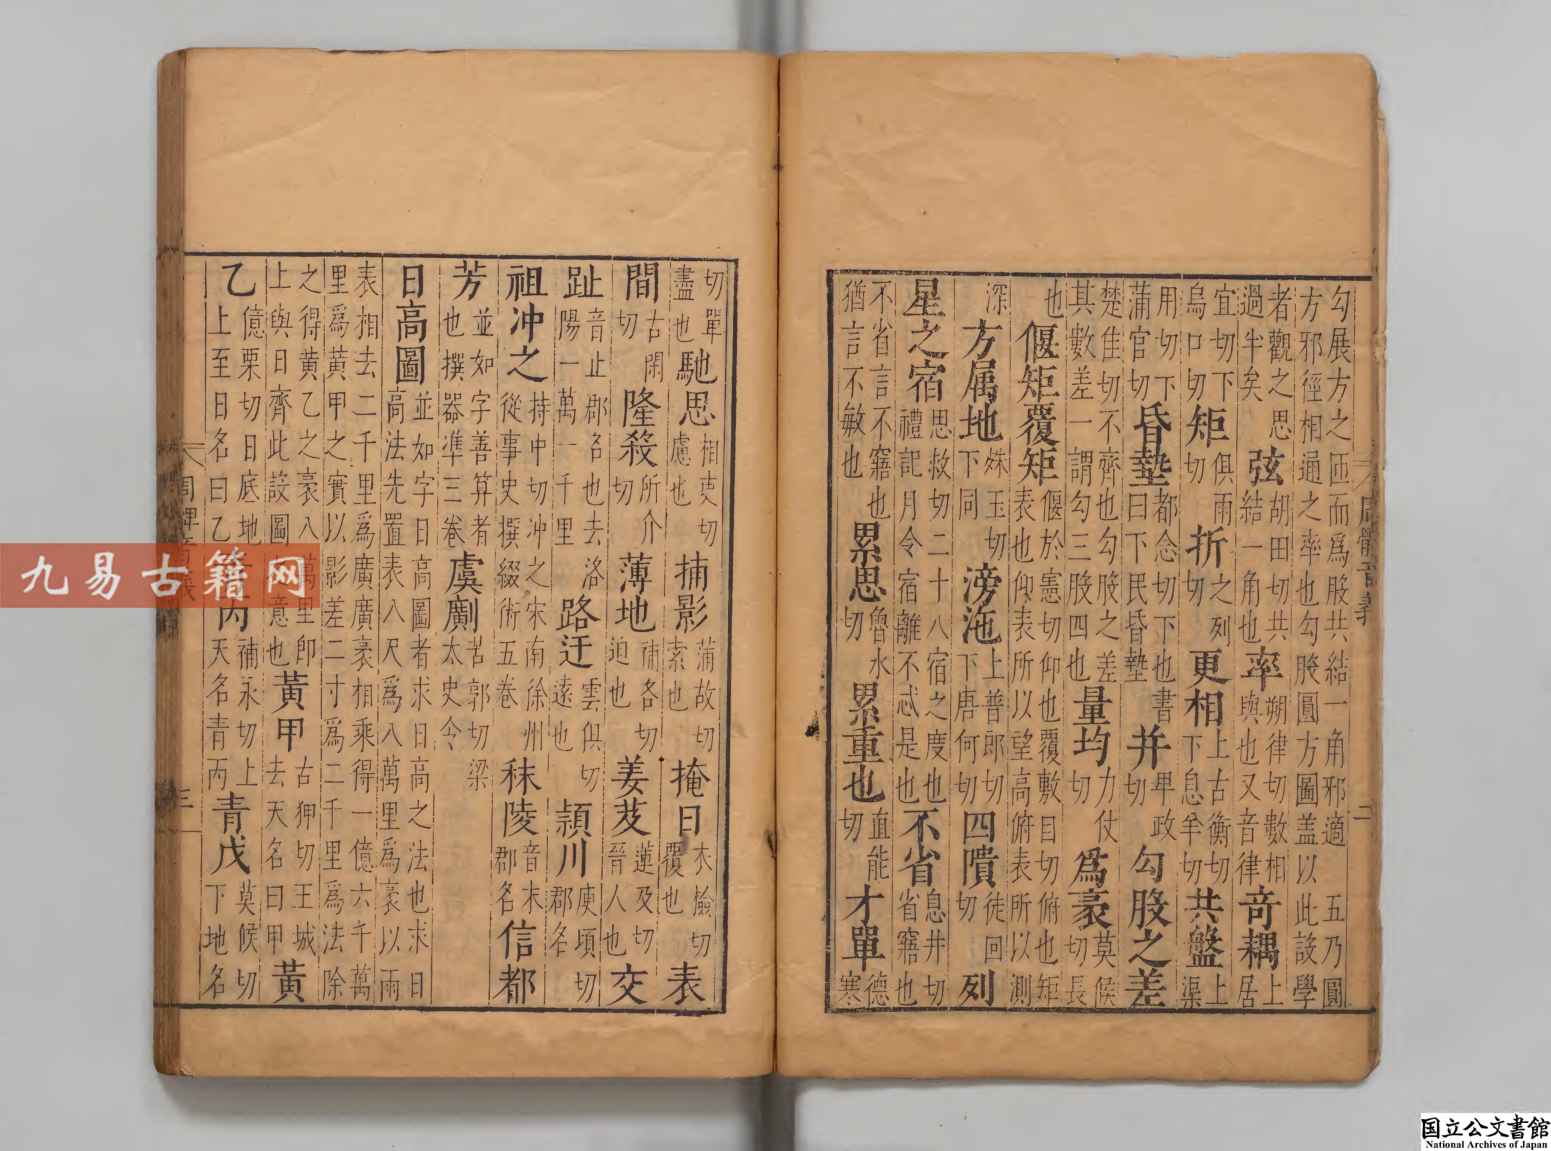 勾展方之匝而為股共結一角邪適 五乃圓
方邪徑相通之率也勾股圓方圖蓋以此設學
者觀之思過半矣弦胡田切共結一角也率朔律切數相與也又音律奇耦上居
宜切下烏口切矩俱雨切折之列切更相上古衡切下息羊切共盤上渠
用切下蒲官切昏墊都念切下也書曰下民昏墊并卑政切勾股之差
楚佳切不齊也勾股之差其數差一謂勾三股四也量均力仗切為袤莫候切長
也偃矩覆矩偃於憲切仰也覆敷目切俯也矩表也仰表所以望高俯表所以測
深方属地姝玉切下同滂沲上普郎切下唐何切四隤徒回切列
星之宿思救切二十八宿之度也禮記月令宿離不忒是也不省息井切省窹也
不省言不窹也猶言不敏也累思魯水切累重也直能切才單德寒
周髀音義
二
切單盡也馳思相吏切慮也捕影蒲故切索也掩日衣檢切覆也表
間古閑切隆殺所介切薄地補各切迫也姜岌蓮及切晉人也交
趾音止郡名也去洛陽一萬一千里路迂雲俱切遠也潁川庾頃切郡名
祖冲之持中切冲之宋南徐州從事史撰綴術五卷秣陵音末郡名信都
芳並如字善算者也撰器準三卷虞劇苦郭切梁太史令
日高圖並如字日高圖者求日高之法也求日高法先置表八尺為八萬里為袤以兩
表相去二千里為廣廣袤相乘得一億六千萬
里為黃甲之實以影差二寸為二千里為法除
之得黃乙之袤八萬里即上與日齊此設圖意也黃甲古狎切王城去天名曰甲黃
乙億栗切日底地上上至日名曰乙丙補永切上天名青丙青戊莫候切下地名
周髀音義
三
九易古籍网
国立公文書館
National Archives of Japan